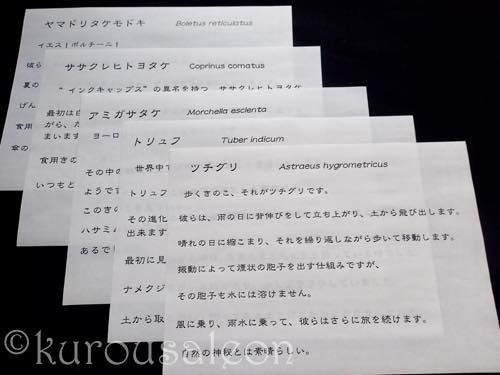 ヤマドリタケモドキ Boletus reticulatus
イエス！ポルチーニ！
彼ら
夏の
げん
食用
傘の
ササクレヒトヨタケ Coprinus comatus
“インクキャップス”の異名を持つ、ササクレヒトヨタケ
最初は
がら、
まいます
食用きの
いつもと
アミガサタケ Morchella escienta
ヨーロ
その中の
ようです
このきの
ハサミ
あるで
トリュフ Tuber indicum
世界中で
トリュフ
その進化
出来ます
最初に見
ナメクジ
土から取
ツチグリ Astraeus hygrometricus
歩くきのこ、それがツチグリです。
彼らは、雨の日に背伸びをして立ち上がり、土から飛び出します。
晴れの日に縮こまり、それを繰り返しながら歩いて移動します。
振動によって煙状の胞子を出す仕組みですが、
その胞子も水には溶けません。
風に乗り、雨水に乗って、彼らはさらに旅を続けます。
自然の神秘とは素晴らしい。
©kurousaleon